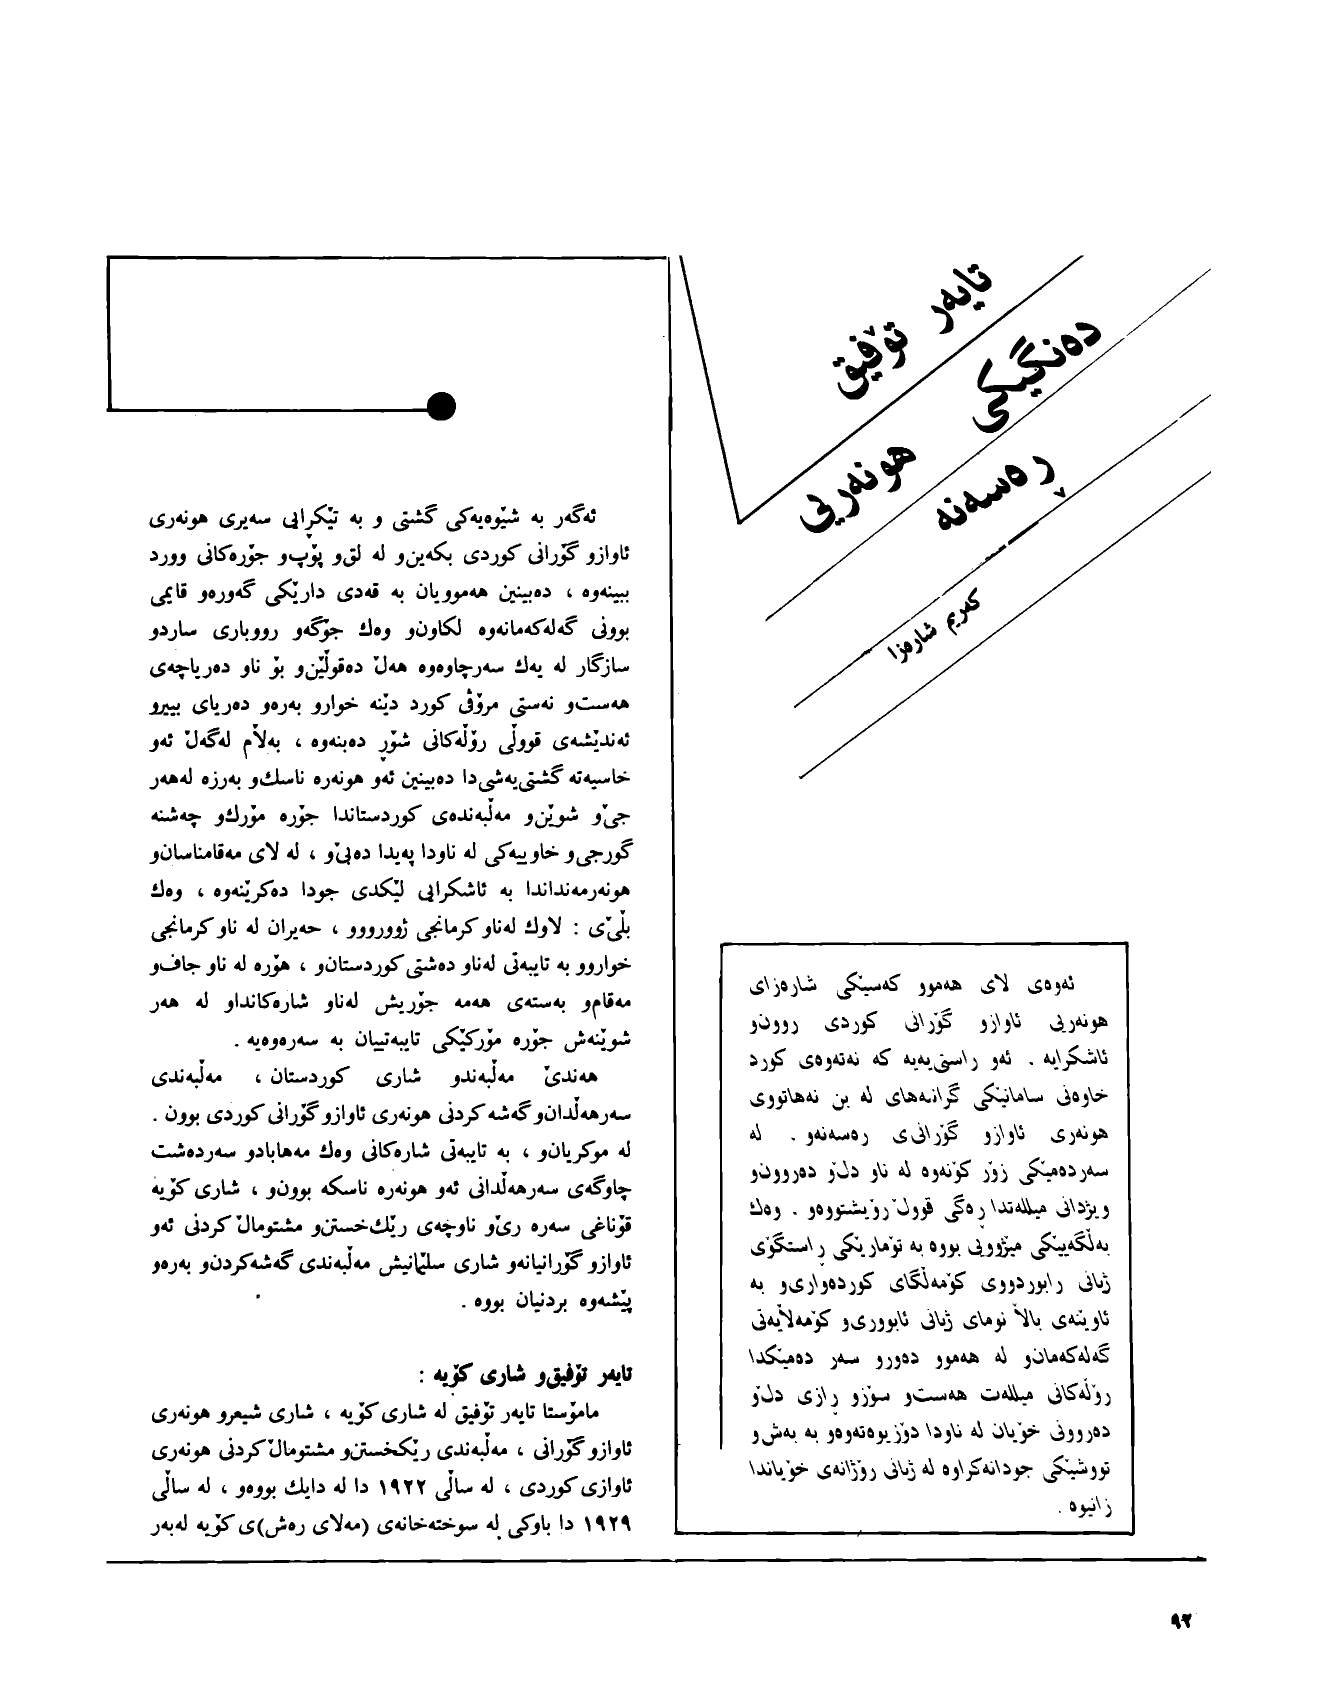 تایەر تۆفیق
دەنگیکی
هونەریی
ڕەسەنە
کەریم شارەزا
ئەوەی لای هەموو کەسێکی شارەزای
هونەریی ئاوازو گۆرانی کوردی روون‌و
ئاشکرایە . ئەو راستی‌یەیە کە نەتەوەی کورد
خاوەنی سامانێکی گرانبەهای لە بن نەهاتووی
هونەری ئاوازو گۆرانی‌ی رەسەنەو . لە
سەردەمێکی زۆر کۆنەوە لە ناو دڵ‌و دەروون‌و
ویژدانی میللەتدا ڕەگی قووڵ رۆیشتووەو . وەك
بەڵگەییکی میژوویی بووە بە تۆماریکی ڕاستگۆی
ژیانی رابوردووی کۆمەڵگای کوردەواری‌و بە
ئاوینەی باڵا نومای ژیانی ئابووری‌و کۆمەلآیەتی
گەلەکەمان‌و لە هەموو دەورو سەر دەمیکدا
رۆڵەکانی میللەت هەست‌و سۆزو ڕازی دڵ‌و
دەروونی خۆیان لە ناودا دۆزیوەتەوەو بە بەش‌و
تووشیکی جودانەکراوە لە ژیانی رۆژانەی خۆیاندا
زانیوە .
ئەگەر بە شێوەیەکی گشتی و بە تێکڕایی سەیری هونەری
ئاوازو گۆرانی کوردی بکەین‌و لە لق‌و پۆپ‌و جۆرەکانی وورد
ببینەوە ، دەبینین هەموویان بە قەدی دارێکی گەورەو قایمی
بوونی گەلەکەمانەوە لکاون‌و وەك جۆگەو رووباری ساردو
سازگار لە یەك سەرچاوەوە هەڵ دەقوڵێن‌و بۆ ناو دەریاچەی
هەست‌و نەستی مرۆڤی کورد دێنە خوارو بەرەو دەریای بییرو
ئەندێشەی قووڵی رۆڵەکانی شۆڕ دەبنەوە ، بەڵام لەگەڵ ئەو
خاسیەتە گشتی‌یەشی‌دا دەبینین ئەو هونەرە ناسك‌و بەرزە لەهەر
جێ‌و شوێن‌و مەڵبەندەی کوردستاندا جۆرە مۆرك‌و چەشنە
گورجی‌و خاوییەکی لە ناودا پەیدا دەبێ‌و ، لە لای مەقامناسان‌و
هونەرمەنداندا بە ئاشکرایی لێکدی جودا دەکرێنەوە ، وەك
بڵێ‌ی : لاوك لەناو کرمانجی ژوورووو ، حەیران لە ناو کرمانجی
خواروو بە تایبەتی لەناو دەشتی کوردستان‌و ، هۆرە لە ناو جاف‌و
مەقام‌و بەستەی هەمە جۆریش لەناو شارەکانداو لە هەر
شوێنەش جۆرە مۆرکێکی تایبەتییان بە سەرەوەیە .
هەندێ مەڵبەندو شاری کوردستان ، مەڵبەندی
سەرهەڵدان‌و گەشە کردنی هونەری ئاوازو گۆرانی کوردی بوون .
لە موکریان‌و ، بە تایبەتی شارەکانی وەك مەهابادو سەردەشت
چاوگەی سەرهەڵدانی ئەو هونەرە ناسکە بوون‌و ، شاری کۆیە
قۆناغی سەرە رێ‌و ناوچەی رێك‌خستن‌و مشتومال کردنی ئەو
ئاوازو گۆرانیانەو شاری سلێمانیش مەڵبەندی گەشەکردن‌و بەرەو
پێشەوە بردنیان بووە .
تایەر تۆفیق‌و شاری کۆیە :
مامۆستا تایەر تۆفیق لە شاری کۆیە ، شاری شیعرو هونەری
ئاوازو گۆرانی ، مەڵبەندی رێکخستن‌و مشتومال کردنی هونەری
ئاوازی کوردی ، لە ساڵی ١٩٢٢ دا لە دایك بووەو ، لە ساڵی
١٩٢٩ دا باوکی لە سوختەخانەی (مەلای رەش)ی کۆیە لەبەر
٩٢